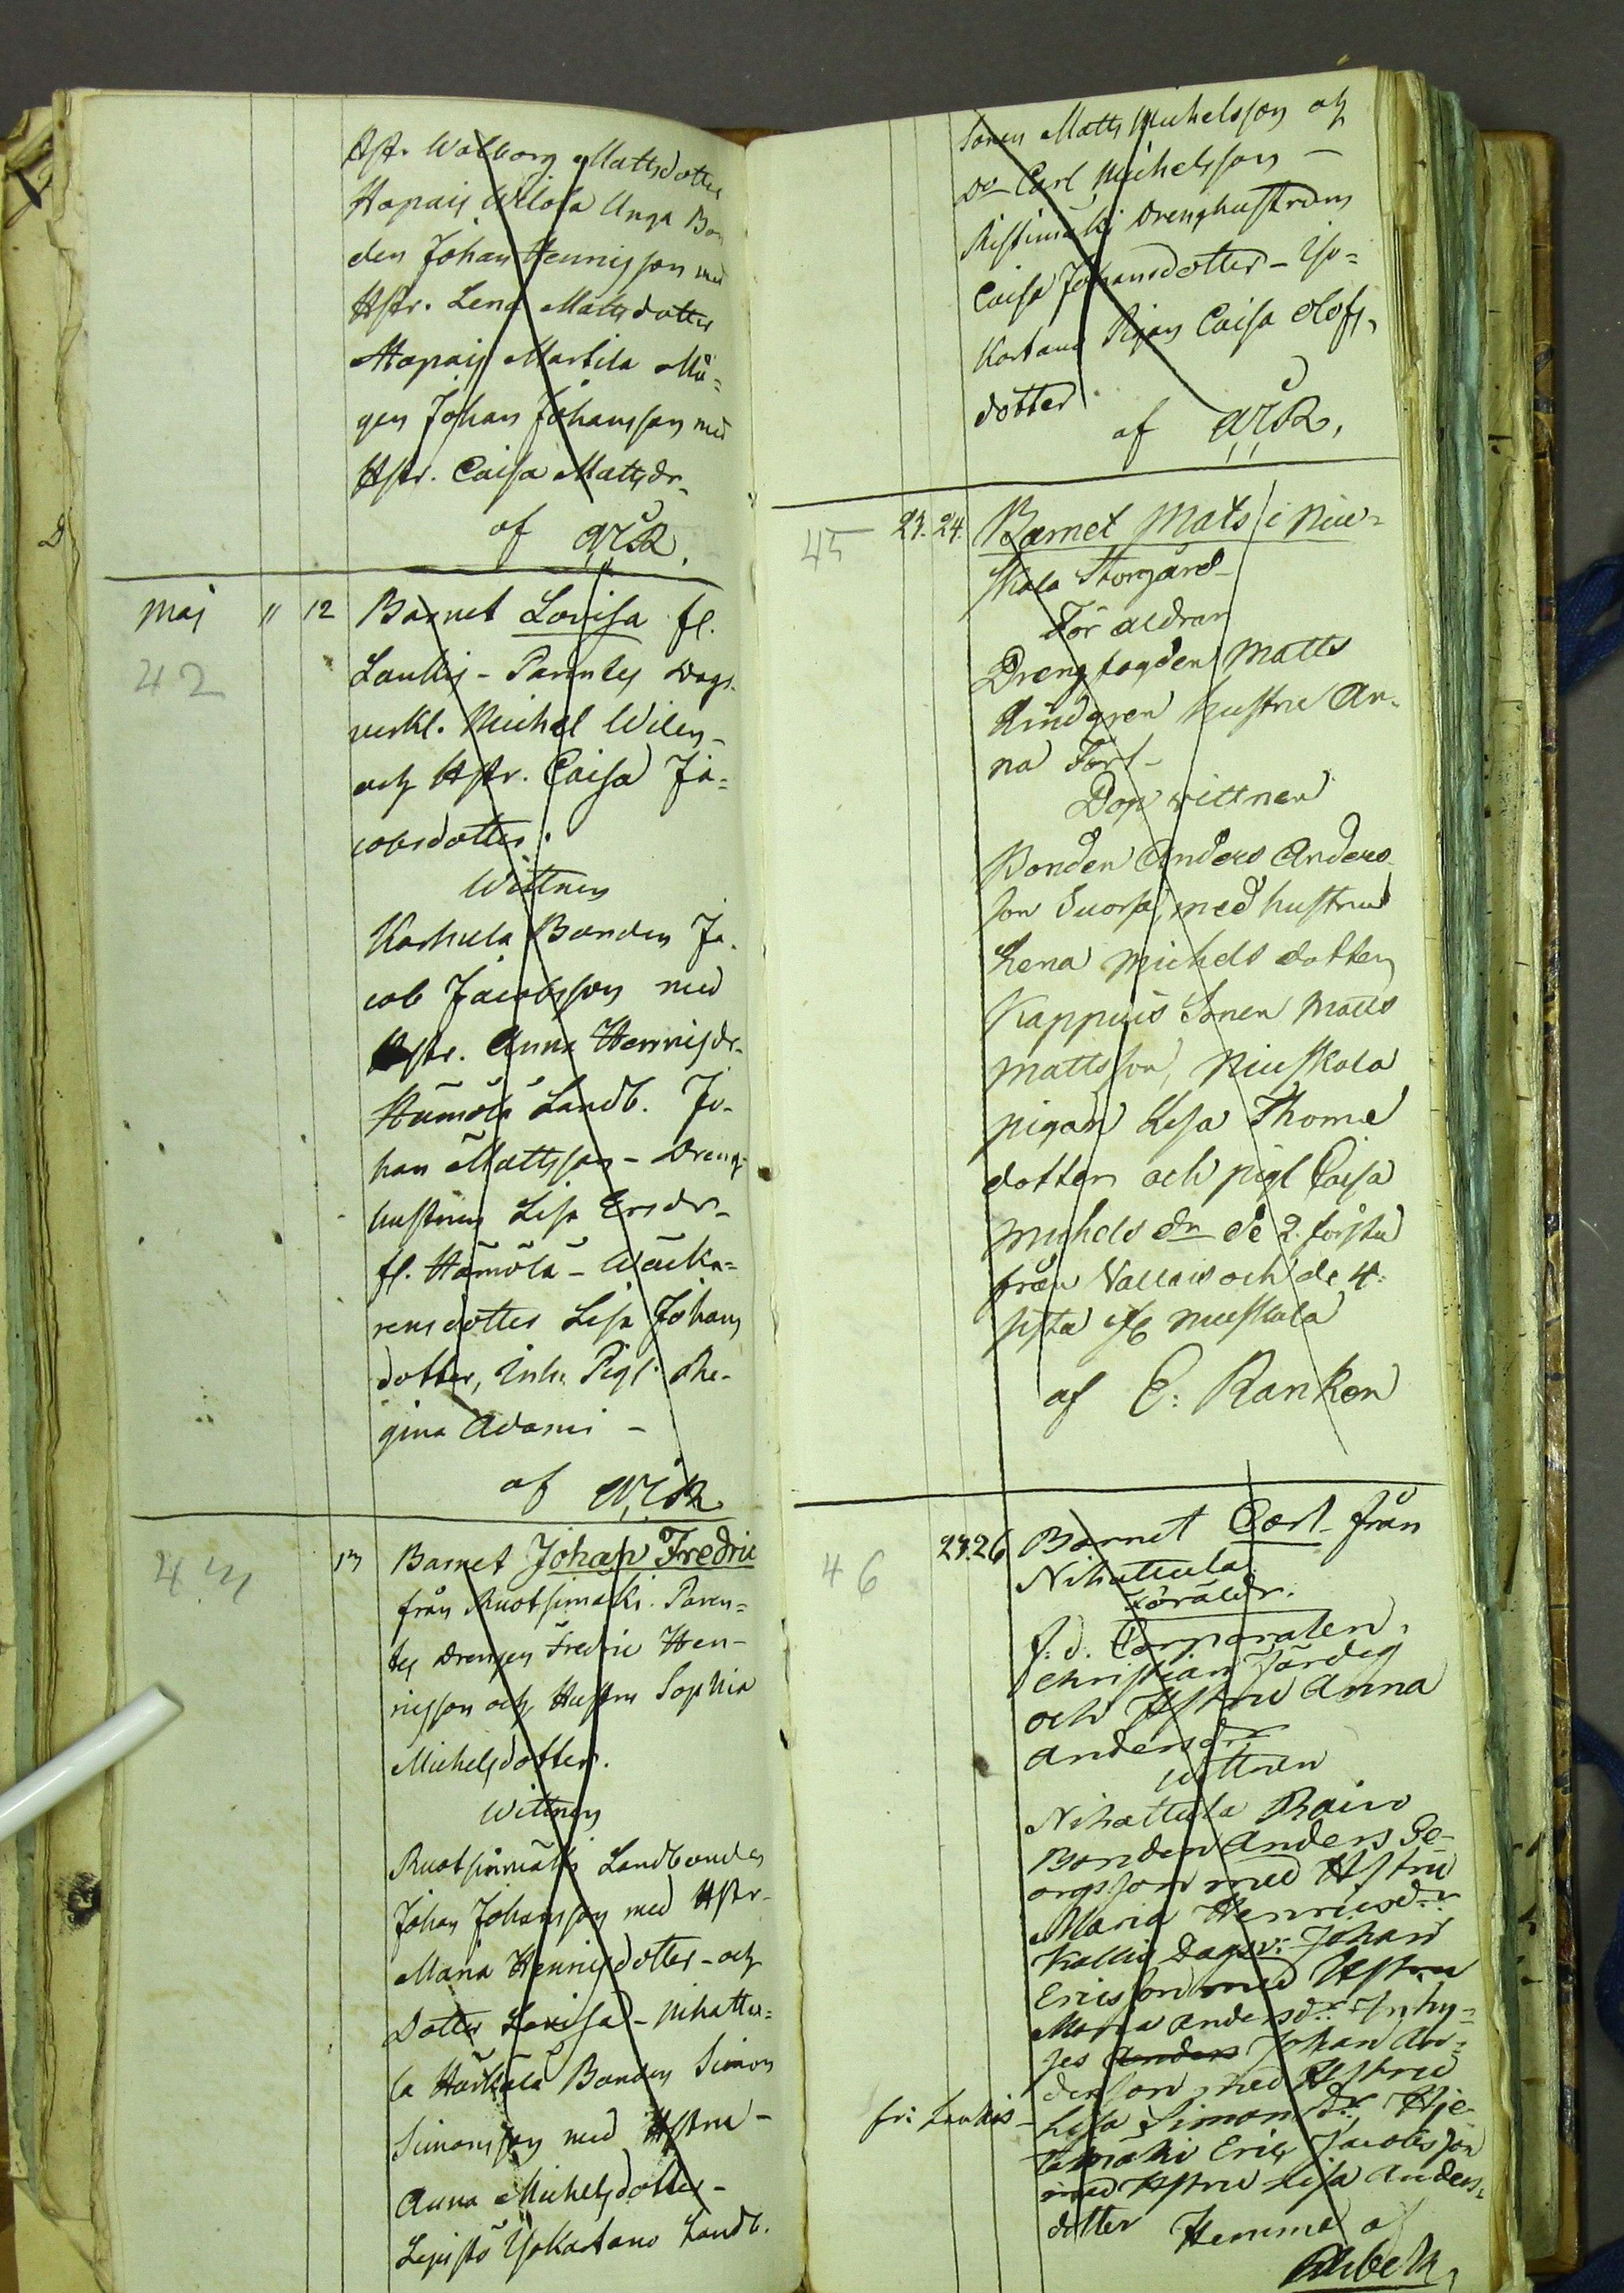 Hstr. Walborg Mattsdotter
Hapais Wilola Unga Bon
den Johan Henrigsson med
Hstr. Lena Mattsdotter
Hapais Martila Må-
gen Johan Johansson med
Hstr. Caisa Mattsdr.
of
Maj " 12 Barnet Lovisa fl.
42
Laukis - Parentes Dags-
verkl. Michel Wilen -
och Hstr. Caisa Ja-
cobsdotter.
Wittnen
Karhula Bonden Ja-
cob Jacobsson med
Hstr. Anna Henrigsdr.
Hämölä Landb. Jo-
han Mattsson - Dreng-
hustrun Lisa Ersdr -
fl. Hämölä - Wäcka-
rensdotter Lisa Johans
dotter, Inh. Pigl. Re-
gina Adami -
of
43 13 Barnet Johan Fredric
från Ruotsimäki. Paren-
tes Drengen Fredric Hen-
ricsson och Hustru Sophia
Michelsdotter.
Wittnen
Ruotsinmäki Landbonden
Johan Johansson med Hstr-
Maria Henrigsdotter - och
Dotter Lovisa - Nihattu-
la Härkälä Bonden Simon
Simonsson med Hstru -
Anna Michelsdotter -
Lepistö Ysokartano Landb.
Sonen Matts Michelsson och
Do Carl Michelsson -
Ristimäki Drenghustrun
Caisa Johansdotter - Yso-
kartano Pigan Caisa Olofs-
dotter.
of
45 23. 24. Barnet Mats i Niu-
skala Storgård -
För äldrar
Drengfogden Matts
Lindgren hustru An-
na Fors -
Dop wittnen
Bonden Anders Anders-
son Suorsa, med hustru
Lena Michels dotter
Kappuis Sonen Matts
Mattsson, Niuskala
pigan Lisa Thomæ
dotter och pigl Caisa
Michels dr de 2. första
från Vallais och de 4.
sista fr Niuskala
af E: Ranken
46 23. 26 Barnet Carl från
Nihattula
Föräldr.
f. d. Corporalen
Christian Färdig
och Hstru Anna
Andersdr
Wittnen
Nihattula Raivo
Bonden Anders Ge-
orgsson med Hstru
Maria Henricsdr
Kallis Dagsv: Johan
Ericsson med Hstru
Maria Andersdr Inhy-
ses Anders Johan An-
dersson med Hstru
fr: Laukis - Lisa Simonsdr Hje-
tamäki Eric Jacobsson
med Hstru Lisa Anders-
dotter Hemma af
Ahlbeck,